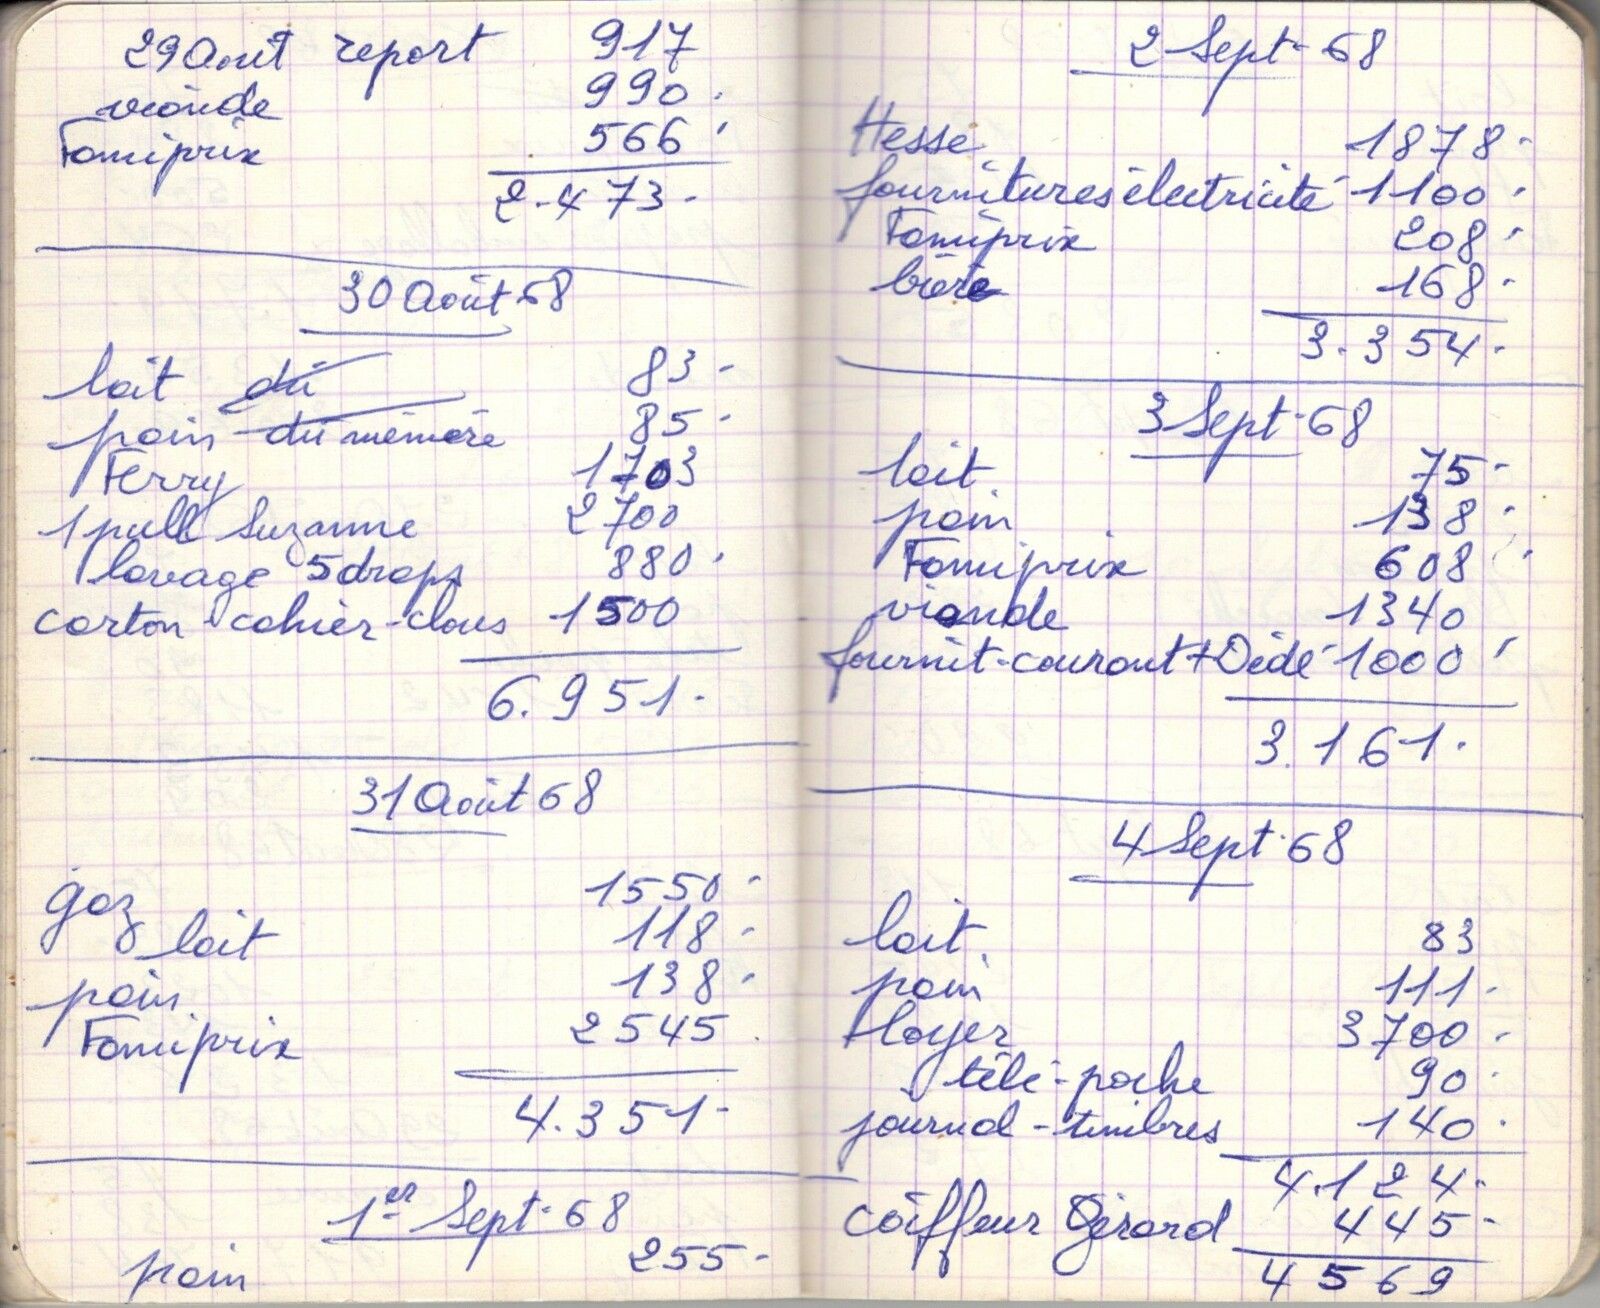 29 Août report 917
viande 990.
Famiprix 566
2.473.
30 Août 68
lait dû 83-
pain dû mémère 85-
Ferry 1703
1 pull Suzanne 2700
lavage 5 draps 880.
carton-cahier-clous 1500
6.951.
31 Août 68
gaz 1550-
lait 118-
pain 138-
Famiprix 2545.
4.351-
1er Sept-68
pain 255-
2 Sept-68
Hesse 1878-
fournitures électricité 1100.
Famiprix 208
bière 168.
3.354.
3 Sept-68
lait 75-
pain 138-
Famiprix 608
viande 1340
fournit-courant+Dédé 1000
3.161.
4 Sept-68
lait 83
pain 111.
loyer 3700.
télé-poche 90.
journal-timbres 140.
4.124.
coiffeur Gérard 445-
4569